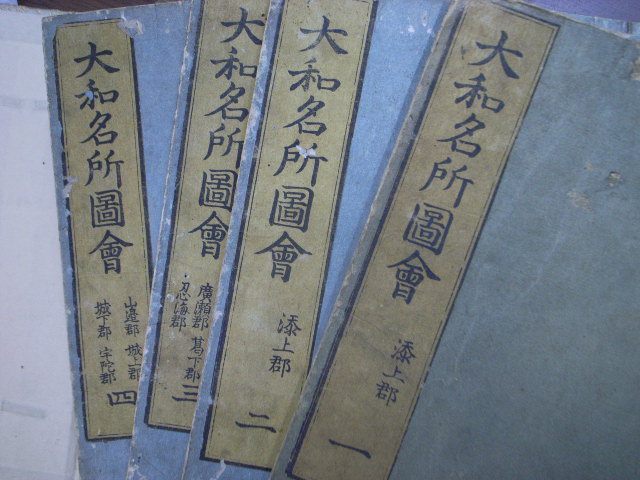 大和名所圖會 添上郡 一
大和名所圖會 添上郡 二
大和名所圖會
廣瀬郡 葛下郡
忍海郡
三
大和名所圖會
山邊郡 城上郡
城下郡 宇陀郡
四